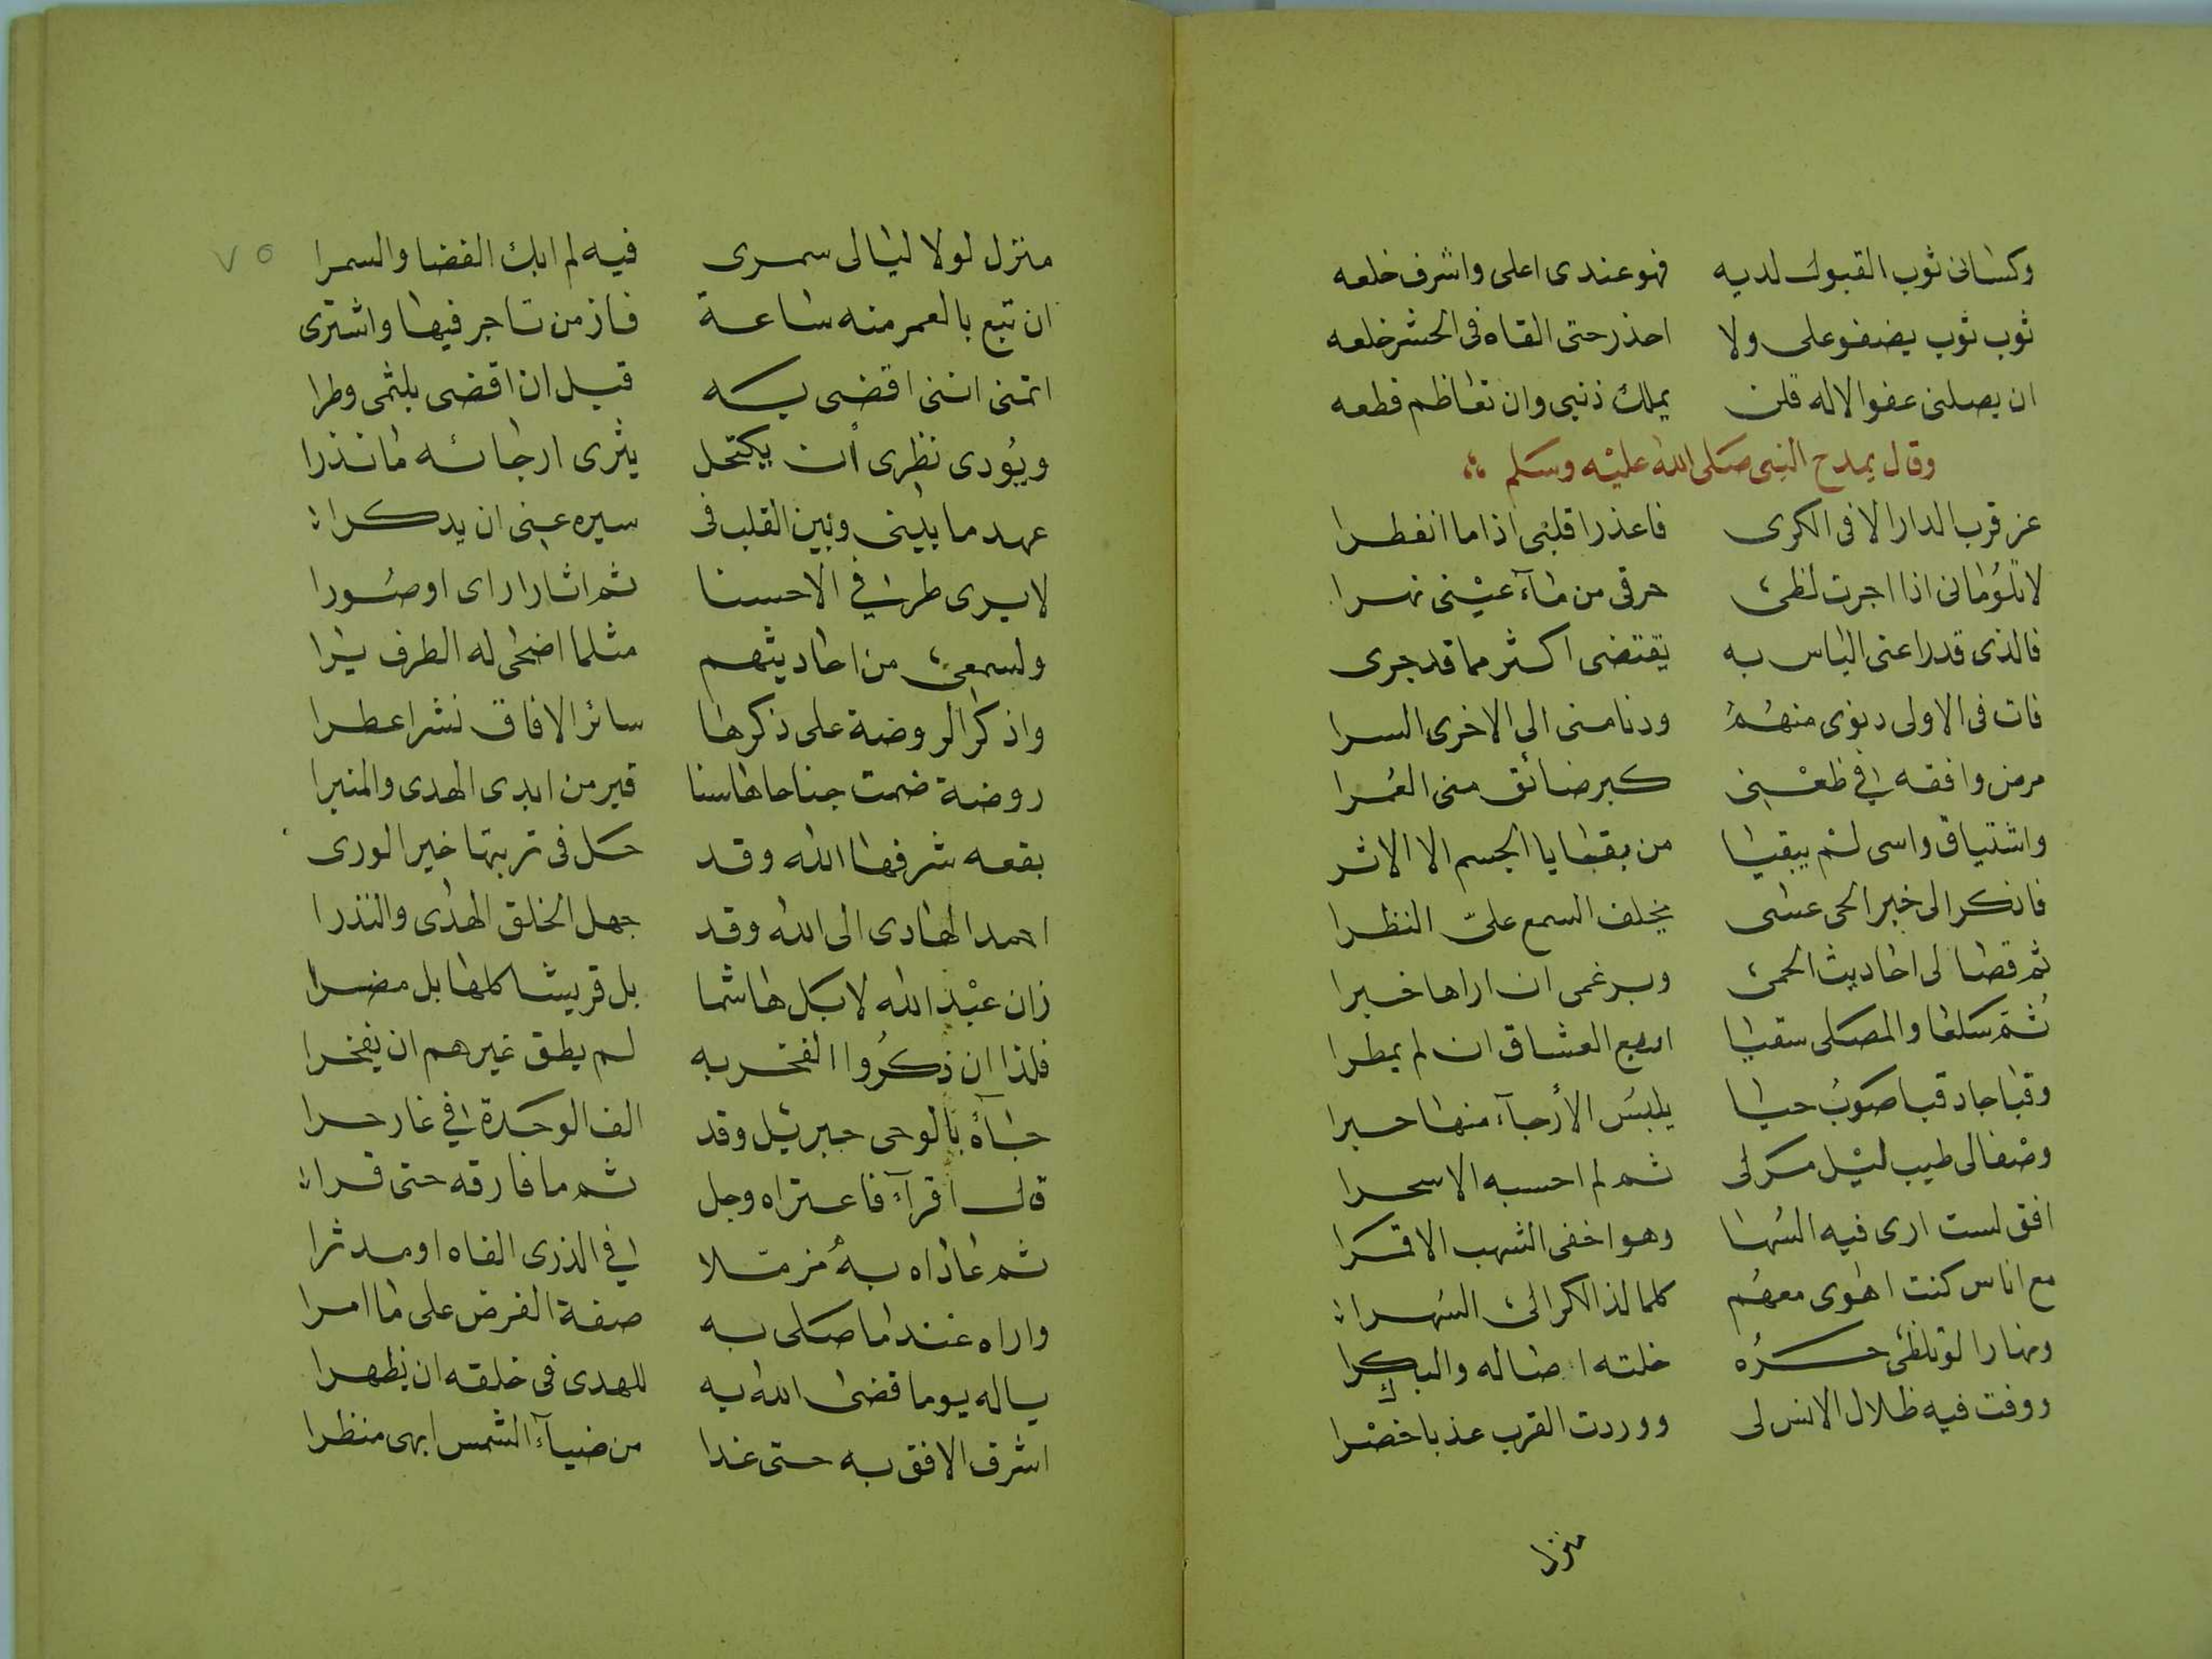 وكسانى ثوب القبول لديه فهو عندى اعلى واشرف خلعه
ثوب ثوب يضفو على ولا احذر حتى القاه فى الحشر خلعه
ان يصلنى عفو الاله فلن يملك ذنبى وان تعاظم قطعه
وقال يمدح النبى صلى الله عليه وسلم
عز قرب الدار الا فى الكرى فاعذرا قلبى اذا ما انفطرا
لا تلومانى اذا اجرت لظى حرقى من مآء عينى نهرا
فالذى قد راعنى الياس به يقتضى اكثر مما قد جرى
فات فى الاولى دنوى منهم ودنا منى الى الاخرى السرا
مرض وافقه فى ظعنى كبر ضائق منى العمرا
واشتياق واسى لم يبقيا من بقايا الجسم الا الاثر
فاذكرا لى خبر الحى عسى يخلف السمع على النظرا
ثم قصا لى احاديث الحمى وبرغمى ان اراها خبرا
ثم سلعا والمصلى سقيا ادمع العشاق ان لم يمطرا
وقبا جاد قبا صوب حيا يلبس الأرجآء منها حبرا
وصفا لى طيب ليل مر لى ثم لم احسبه الا سحرا
افق لست ارى فيه السها وهو اخفى الشهب الا قمرا
مع اناس كنت اهوى معهم كلما لذ الكرا لى السهرا
ونهارا لو تلظى حره خلته اصاله والبكرا
ووفت فيه ظلال الانس لى ووردت القرب عذبا خضرا
منزل
٧٥
منزل لولا ليالى سمرى فيه لم ابك الغضا والسمرا
ان تبع بالعمر منه ساعة فاز من تاجر فيها واشترى
اتمنى اننى اقضى به قبل ان اقضى بلثمى وطرا
ويؤدى نظرى أن يكتحل بثرى ارجائه ما نذرا
عهد ما بينى وبين القلب فى سيره عنى ان يدكرا
لا يرى طرفى الا حسنا ثم اثارا راى او صورا
ولسمعى من احاديثهم مثلما اضحى له الطرف يرا
واذكرا لى روضة على ذكرها سائر الافاق نشرا عطرا
روضة ضمت جناحاها سنا قبر من ابدى الهدى والمنبرا
بقعه شرفها الله وقد حل فى تربتها خير الورى
احمد الهادى الى الله وقد جهل الخلق الهدى والنذرا
زان عبد الله لا بل هاشما بل قريشا كلها بل مضرا
فلذا ان ذكروا الفخر به لم يطق غيرهم ان يفخرا
جآءه بالوحى جبريل وقد الف الوحدة فى غار حرا
قال اقرآء فاعتراه وجل ثم ما فارقه حتى قرا
ثم عاداه به مزملا فى الذرى الفاه او مدثرا
واراه عندما صلى به صفة الفرض على ما امرا
ياله يوما قضى الله به للهدى فى خلقه ان يظهرا
اشرق الافق به حتى غدا من ضيآء الشمس ابهى منظرا